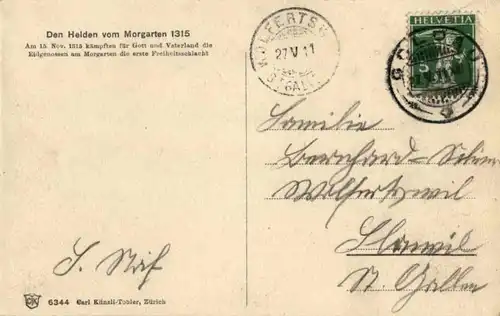 Den Helden vom Morgarten 1315
Am 15. Nov. 1315 kämpften für Gott und Vaterland die
Eidgenossen am Morgarten die erste Freiheitsschlacht
WOLFERTS
27 V 11
HELVETIA
5
Familie
Bernhard-
Wolfertswil
Flawil
St. Gallen
6344 Carl Künzli-Tobler, Zürich